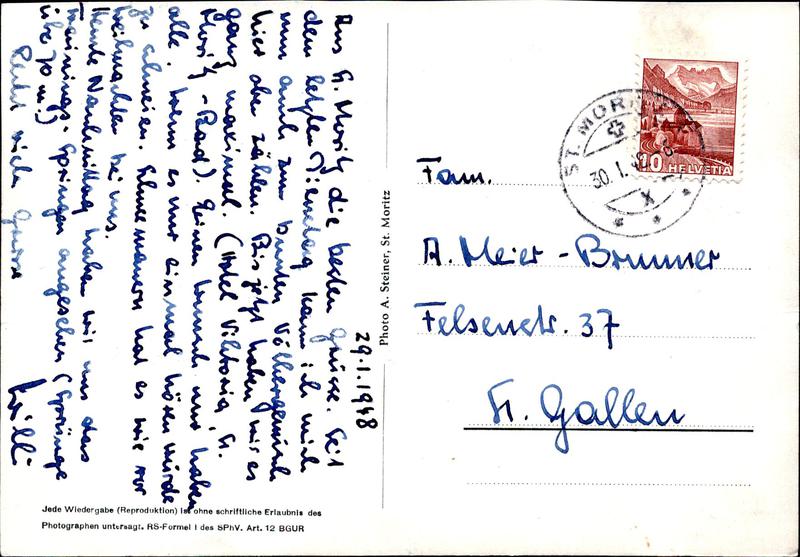 29.1.1948
Aus St. Moritz die besten Grüsse. Seit
dem letzten Dienstag kann ich mich
nun auch zum bunten Völkergemisch
hier oben zählen. Bis jetzt haben wir es
ganz maximal. (Hotel Viktoria, St.
Moritz-Bad). Einen Wunsch nur haben
alle: wenn es nur einmal hören würde
zu schneien. Schneemauern hat es wie vor
Weihnachten bei uns.
Heute Nachmittag haben wir uns das
Trainings-Springen angesehen (Sprünge
über 70 m!)
Recht viele Grüsse
Willi
Jede Wiedergabe (Reproduktion) ist ohne schriftliche Erlaubnis des
Photographen untersagt. RS-Formel I des SPhV. Art. 12 BGUR
Photo A. Steiner, St. Moritz
ST. MORITZ
30.1.48
X
10 HELVETIA
Fam.
A. Meier - Brunner
Felsenstr. 37
St. Gallen